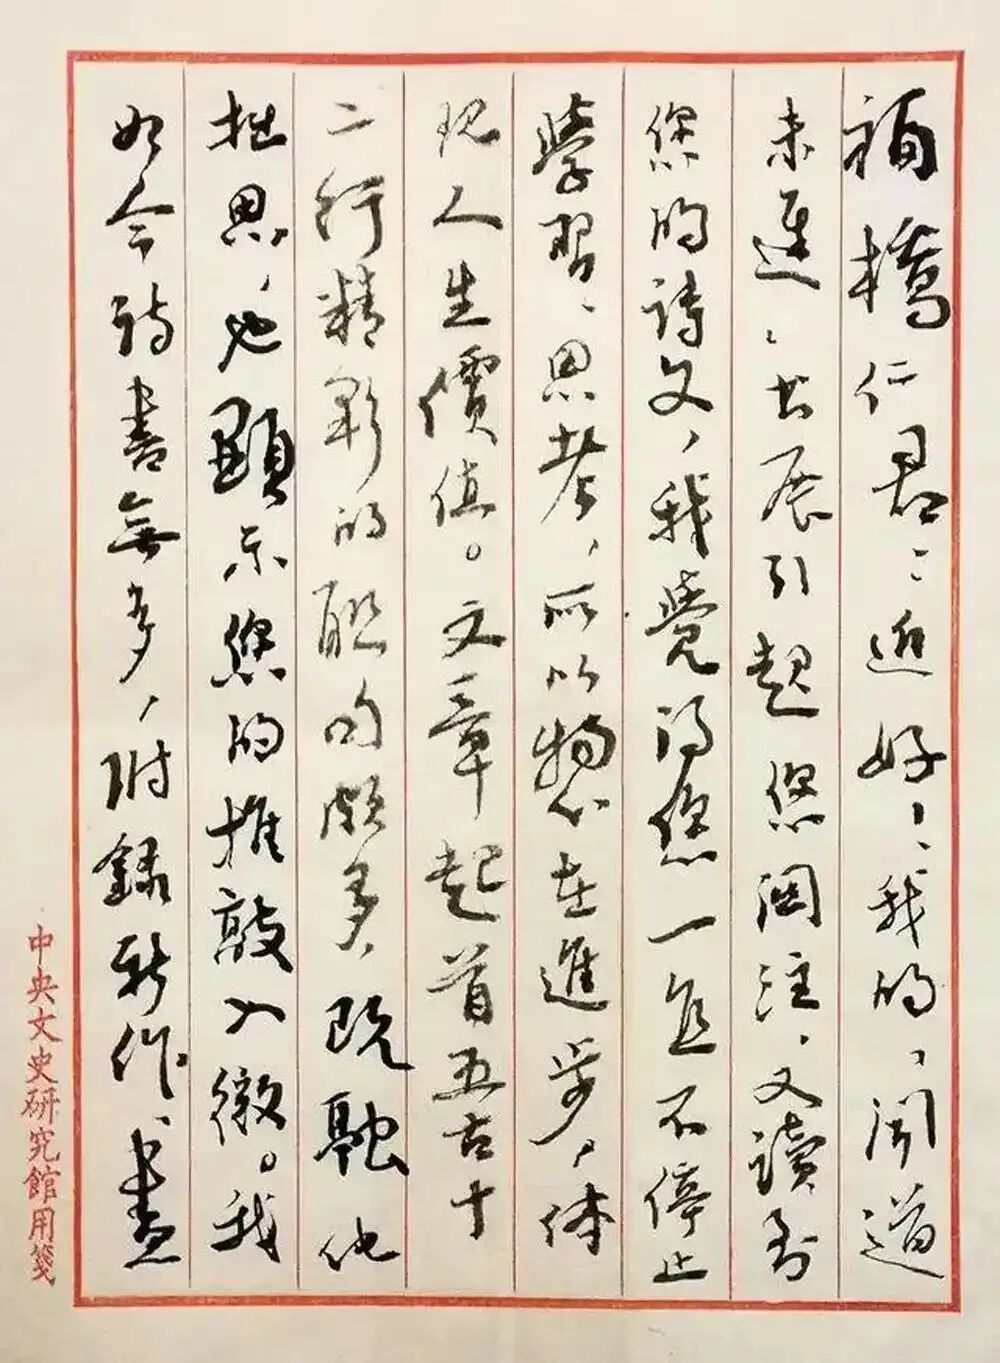 福橋仁君：近好！我的《聞道
未遲》書展引起您関注，又讀到
您的詩文，我覺得您一直不停止
學習、思考，所以總在進步，体
現人生價值。文章起首五古十
二行精彩的聯句頗多，既融他
拙思，也顯示您的推敲入微。我
如今詩書無多，附錄新作，書
中央文史研究館用箋